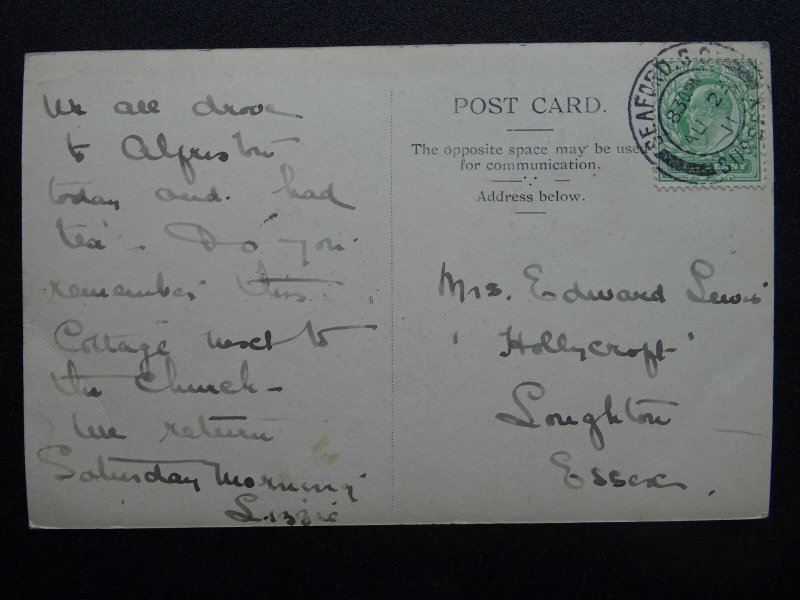 We all drove
to Alfriston
today and had
tea - Do you
remember this
Cottage next to
the Church -
We return
Saturday Morning
Lizzie
POST CARD.
The opposite space may be use
for communication.
Address below.
SEAFORD. S.O.
8 30
AU 2
11
SUSSEX
Mrs. Edward Lewis
'Hollycroft'
Loughton
Essex.